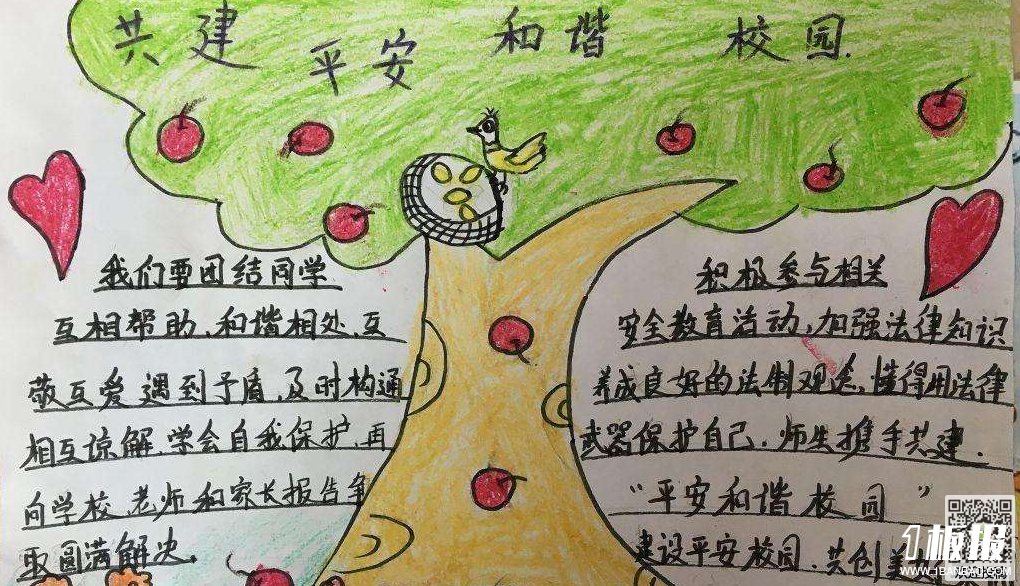 共建 平安 和谐 校园.
我们要团结同学
互相帮助、和谐相处、互
敬互爱遇到予盾,及时构通
相互谅解、学会自我保护、再
向学校、老师和家长报告争
取圆满解决、
积极参与相关
安全教育活动,加强法律知识
养成良好的法制观念,懂得用法律
武器保护自己.师生携手共建.
“平安和谐校园”
建设平安校园.共创美
1板报
WWW.1BANBAO.COM